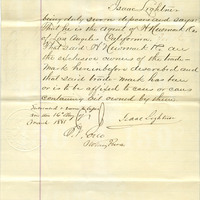 Isaac Lightner
being duly sworn deposes and says
That he is the agent of H Newmark & Co
of Los Angeles California
That said H Newmark & Co are
the exclusive owners of the trade-
mark hereinbefore described and
that said trade-mark has been
or is to be affixed to cases or cans
containing
owned by them
Subscribed
me this 16th day of
March 1881
Isaac Lightner